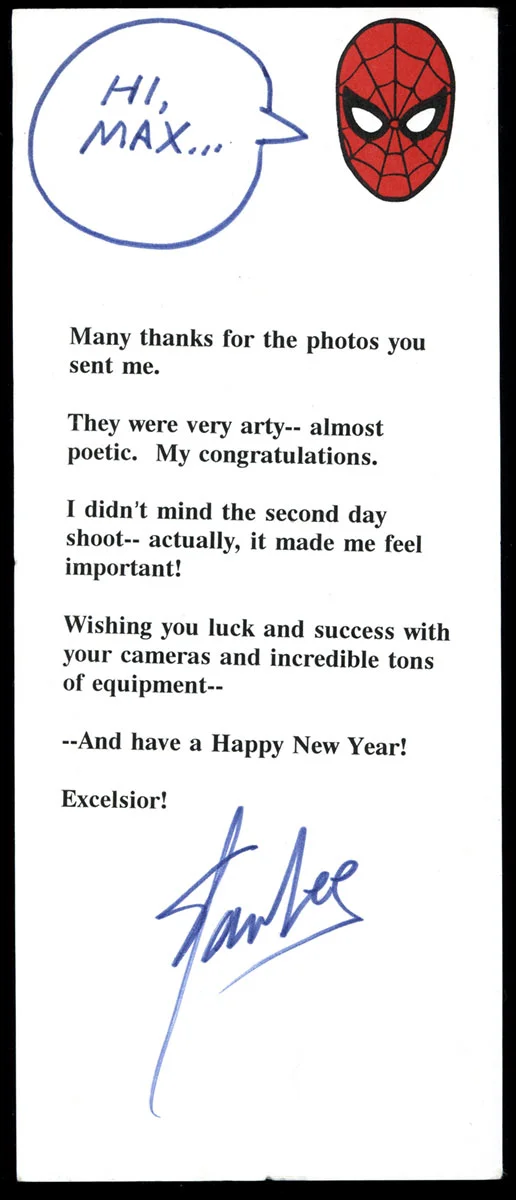 HI,
MAX...
Many thanks for the photos you
sent me.
They were very arty-- almost
poetic.  My congratulations.
I didn't mind the second day
shoot-- actually, it made me feel
important!
Wishing you luck and success with
your cameras and incredible tons
of equipment--
--And have a Happy New Year!
Excelsior!
Stan Lee